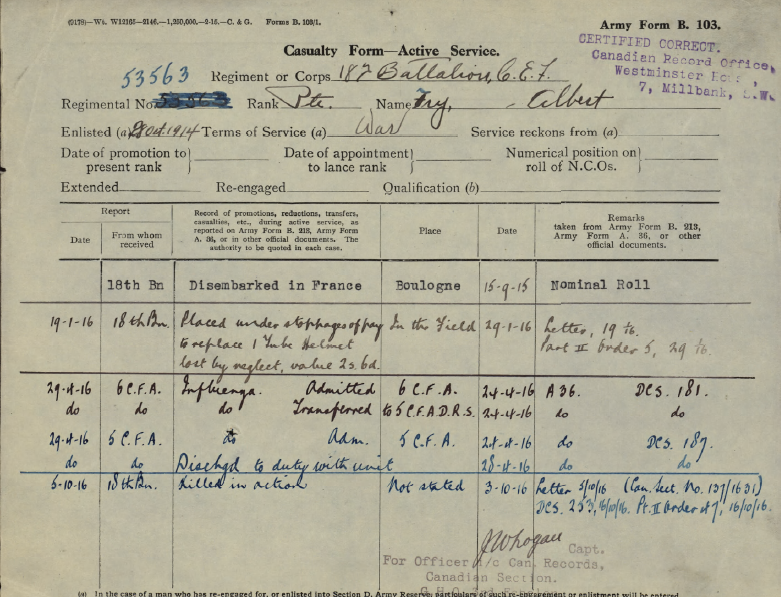 (9178)—Wt. W12165—2146.—1,250,000.—2-15.—C. & G. Forms B. 103/1.
Army Form B. 103.
CERTIFIED CORRECT.
Canadian Record Office,
Westminster
7, Millbank, S.W.
Casualty Form—Active Service.
53563 Regiment or Corps 18th Battalion, C.E.F.
Regimental No. Rank Pte. Name Fry, - Albert
Enlisted (a) Oct. 1914 Terms of Service (a) War Service reckons from (a)
Date of promotion to present rank Date of appointment to lance rank Numerical position on roll of N.C.Os.
Extended Re-engaged Qualification (b)
Report
Date From whom received
Record of promotions, reductions, transfers, casualties, etc., during active service, as reported on Army Form B. 213, Army Form A. 36, or in other official documents. The authority to be quoted in each case.
Place
Date
Remarks taken from Army Form B. 213, Army Form A. 36, or other official documents.
18th Bn Disembarked in France Boulogne 15-9-15 Nominal Roll
19-1-16 18th Bn. Placed under stoppages of pay In the Field 29-1-16 Letter, 19
to replace 1 Tube Helmet Part II Order 5, 29
lost by neglect, value 2s. 6d.
29-4-16 6 C.F.A. Influenza. Admitted 6 C.F.A. 24-4-16 A 36. DCS. 181.
do do do Transferred to 5 C.F.A.D.R.S. 24-4-16 do do
29-4-16 5 C.F.A. do Adm. 5 C.F.A. 24-4-16 do DCS. 187.
do do Dischgd to duty with unit 28-4-16 do do
5-10-16 18th Bn. Killed in action Not stated 3-10-16 Letter 5/10/16 (Can. Sect. No. 137/1631)
DCS. 253, 16/10/16. Pt. II Order 47, 16/10/16.
Capt.
For Officer i/c Can. Records,
Canadian Section.
(a) In the case of a man who has re-engaged for, or enlisted into Section D, Army Reserve, particulars of such re-engagement or enlistment will be entered